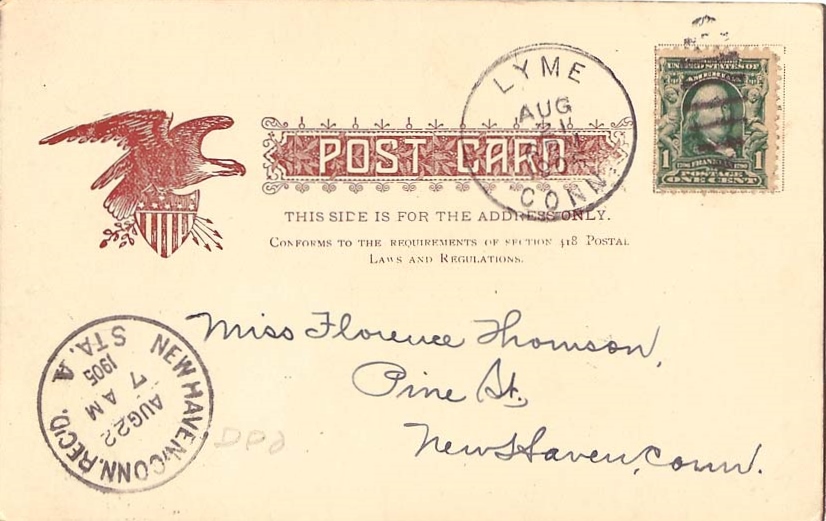 LYME
AUG
CONN.
UNITED STATES OF
AMERICA
1 FRANKLIN 1
POSTAGE
ONE CENT
POST CARD
THIS SIDE IS FOR THE ADDRESS ONLY.
CONFORMS TO THE REQUIREMENTS OF SECTION 418 POSTAL
LAWS AND REGULATIONS.
Miss Florence Thomson,
Pine St.,
New Haven, Conn.
NEW HAVEN, CONN. REC'D.
STA. A
1905
7 AM
AUG 22